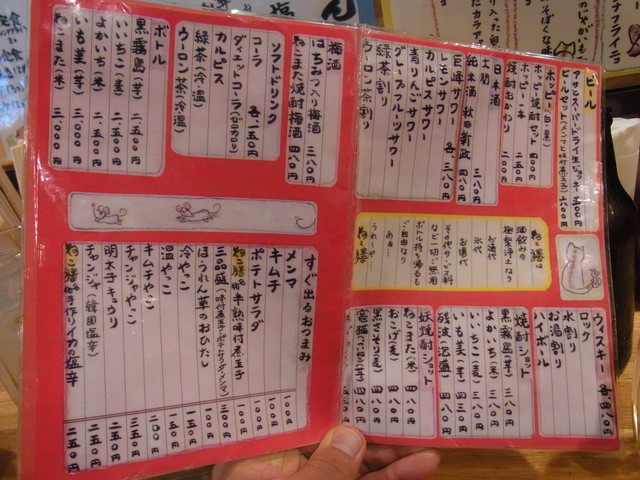 ビール
アサヒスーパードライ生ジョッキ 五〇〇円
ビールセット(メンマと味付煮玉子) 六〇〇円
ホッピー(白・黒)
ホッピー焼酎セット 四〇〇円
ホッピー一本 二五〇円
焼酎おかわり 二〇〇円
日本酒
大関 三八〇円
純米酒 秋田 新政 四八〇円
巨峰サワー
レモンサワー 各三八〇円
カルピスサワー
青りんごサワー
グレープフルーツサワー
緑茶割り
ウーロン茶割り
梅酒
はちみつ入り梅酒 三八〇円
ねこまた焼酎梅酒 四八〇円
ソフトドリンク 各二五〇円
コーラ
ダイエットコーラ
カルピス
緑茶(冷・温)
ウーロン茶(冷・温)
ボトル
黒霧島(芋) 二、五〇〇円
いいちこ(麦) 二、五〇〇円
よかいち(米) 二、五〇〇円
いも美(芋) 三、〇〇〇円
ねこまた(米) 三、〇〇〇円
ねこ膳は
お湯代
氷代
お湯代
その他サービス料
など一切ご無用
ボトル持ち帰るも
ご自由なり
あぁ…
うれしや…
ねこ膳
ウィスキー 各四八〇円
ロック
水割り
お湯割り
ハイボール
焼酎ショット
黒霧島(芋) 三八〇円
よかいち(米) 三八〇円
いいちこ(麦) 三八〇円
いも美(芋) 四三〇円
残波(泡盛) 四八〇円
妖焼酎ショット
ねこまた(米) 四八〇円
おこげ(麦) 四八〇円
黒さそり(麦) 四八〇円
すぐ出るおつまみ
メンマ 一〇〇円
キムチ 一〇〇円
ポテトサラダ 一〇〇円
ねこ膳風半熟味付煮玉子 一〇〇円
三品盛(味付煮玉子・ポテトサラダ・メンマ) 三〇〇円
ほうれん草のおひたし 一〇〇円
冷やっこ 一五〇円
温やっこ 一五〇円
キムチやっこ 二〇〇円
チャンジャやっこ 三五〇円
明太子キュウリ 二五〇円
チャンジャ(韓国塩辛) 二五〇円
ねこ膳風手作りイカの塩辛 二五〇円